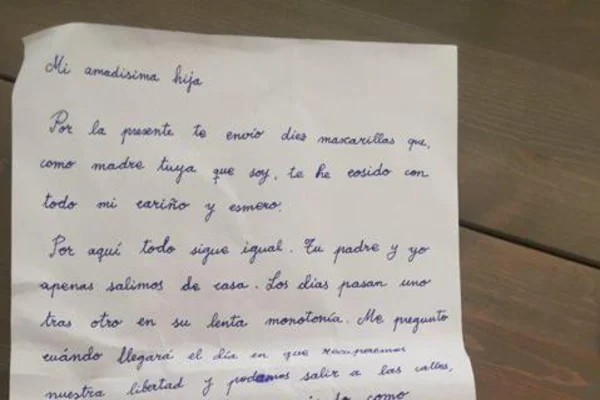 Mi amadísima hija
Por la presente te envío diez mascarillas que,
como madre tuya que soy, te he cosido con
todo mi cariño y esmero.
Por aquí todo sigue igual. Tu padre y yo
apenas salimos de casa. Los días pasan uno
tras otro en su lenta monotonía. Me pregunto
cuándo llegará el día en que recuperemos
nuestra libertad y podamos salir a las calles,
como